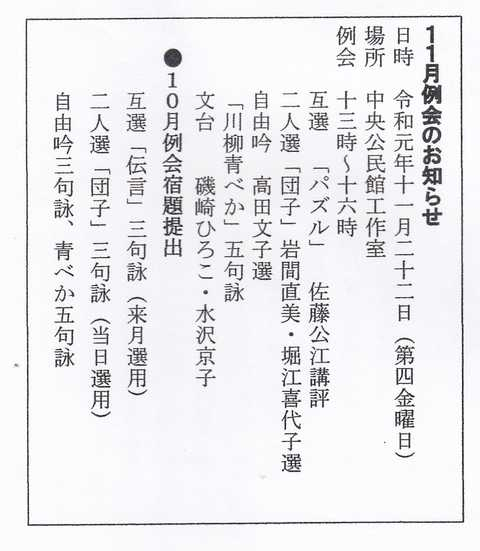 11月例会のお知らせ
日時　令和元年十一月二十二日（第四金曜日）
場所　中央公民館工作室
例会　十三時～十六時
互選　「パズル」　佐藤公江講評
二人選「団子」岩間直美・堀江喜代子選
自由吟　高田文子選
「川柳青べか」五句詠
文台　磯崎ひろこ・水沢京子
●10月例会宿題提出
互選「伝言」三句詠（来月選用）
二人選「団子」三句詠（当日選用）
自由吟三句詠、青べか五句詠